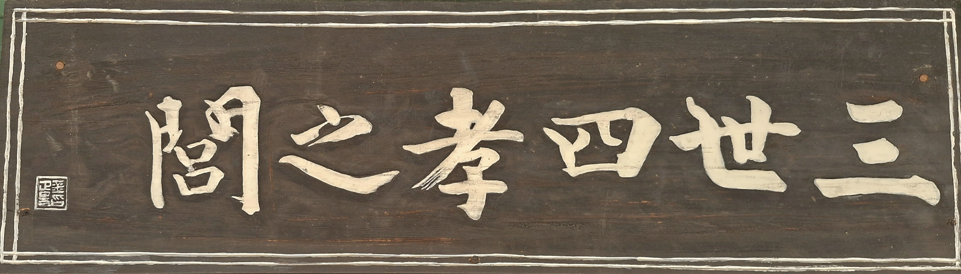 三世四孝之閭